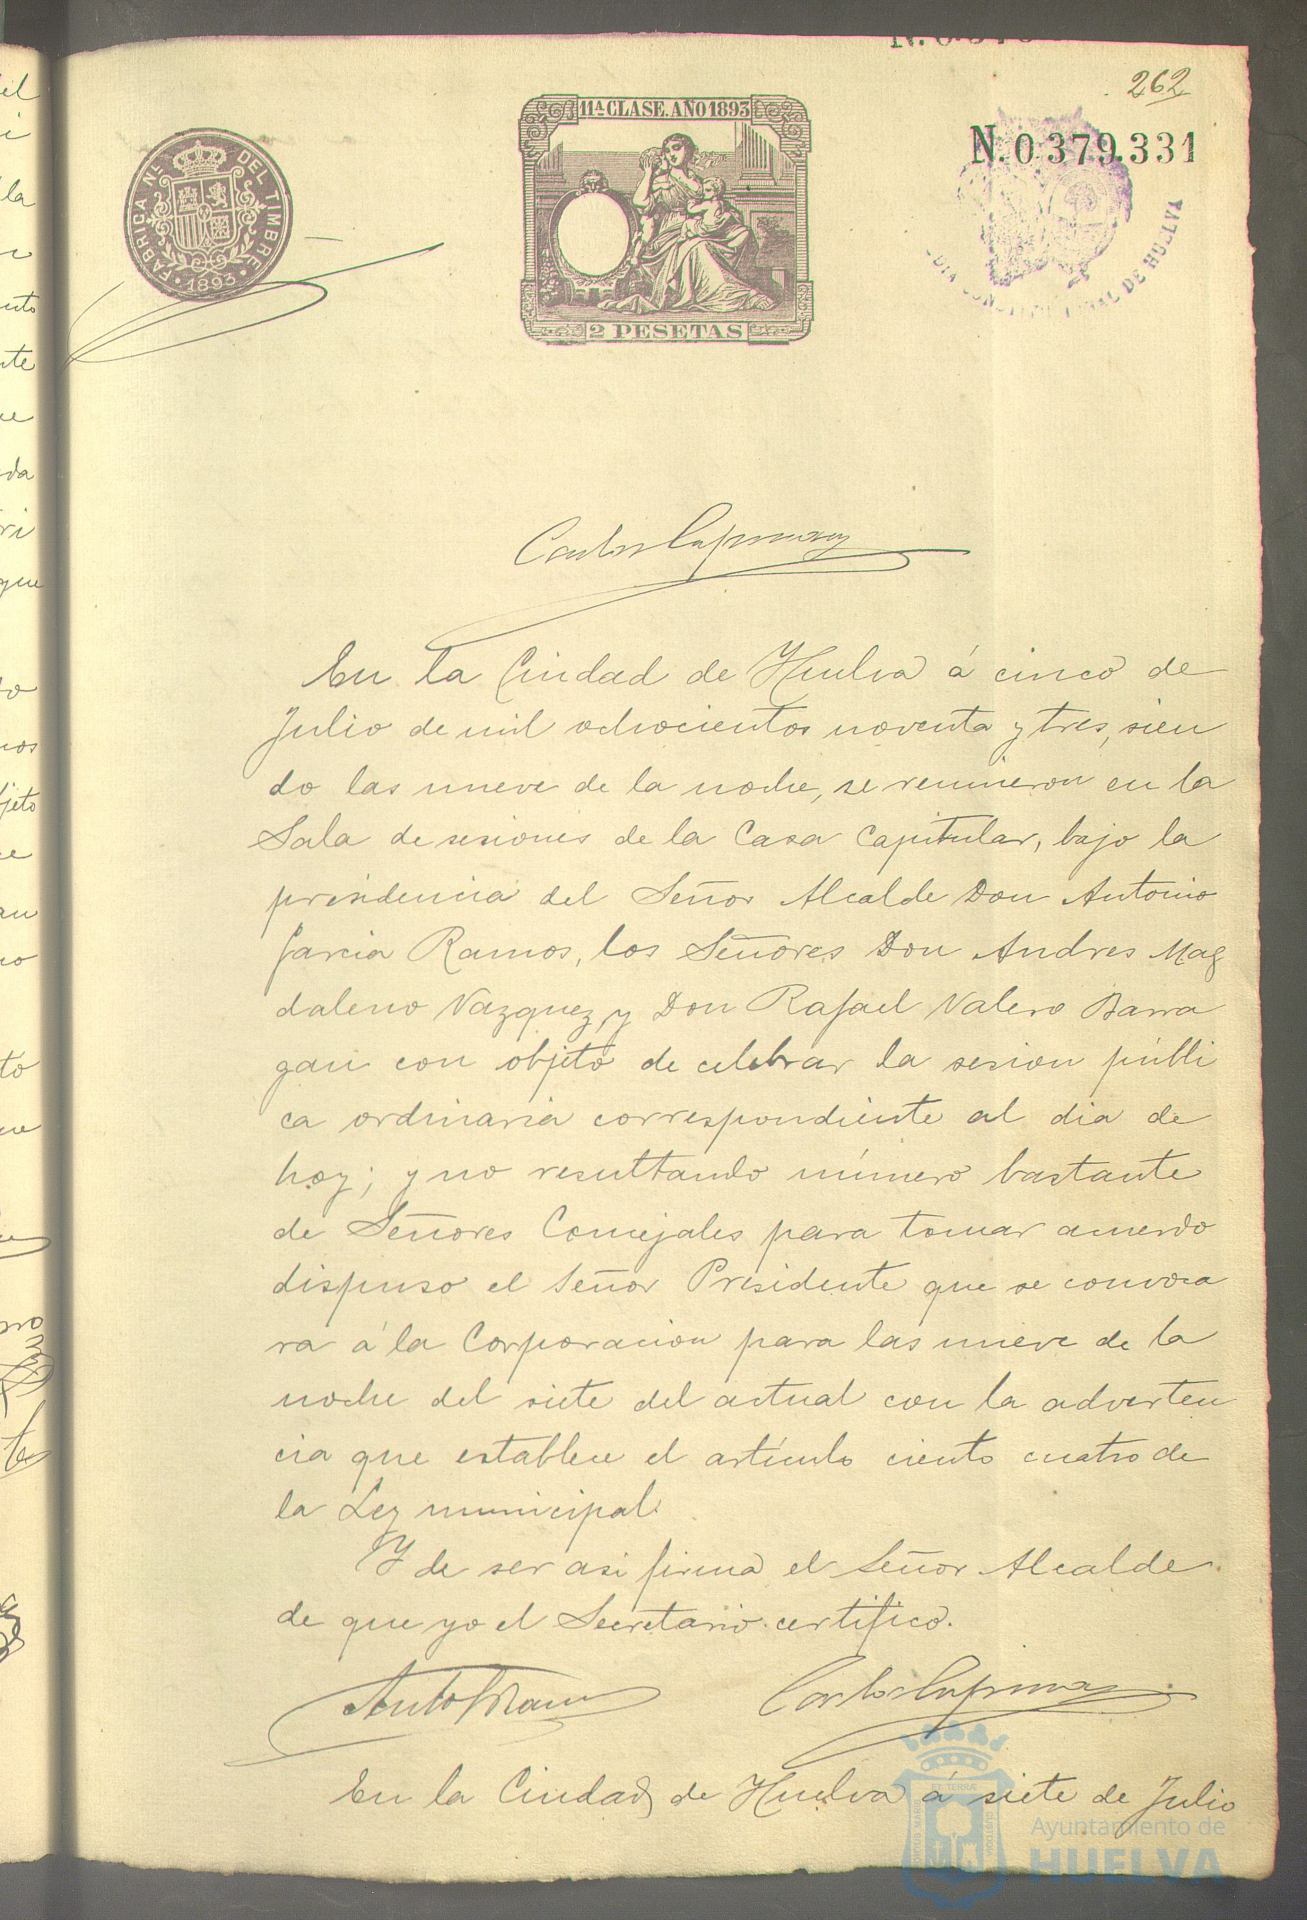 262
11ª CLASE. AÑO 1893
N. 0.379.331
FABRICA Nᴸ DEL TIMBRE
1893
DE HUELVA
2 PESETAS
En la Ciudad de Huelva á cinco de
Julio de mil ochocientos noventa y tres, sien
do las nueve de la noche, se reunieron en la
Sala de sesiones de la Casa Capitular, bajo la
presidencia del Señor Alcalde Don Antonio
Garcia Ramos, los Señores Don Andres Mag
daleno Vazquez y Don Rafael Valero Barra
gan con objeto de celebrar la sesion públi
ca ordinaria correspondiente al dia de
hoy; y no resultando número bastante
de Señores Concejales para tomar acuerdo
dispuso el Señor Presidente que se convoca
ra á la Corporacion para las nueve de la
noche del siete del actual con la adverten
cia que establece el artículo ciento cuatro de
la Ley municipal.
Y de ser asi firma el Señor Alcalde
de que yo el Secretario certifico.
En la Ciudad de Huelva á siete de Julio
Ayuntamiento de
HUELVA